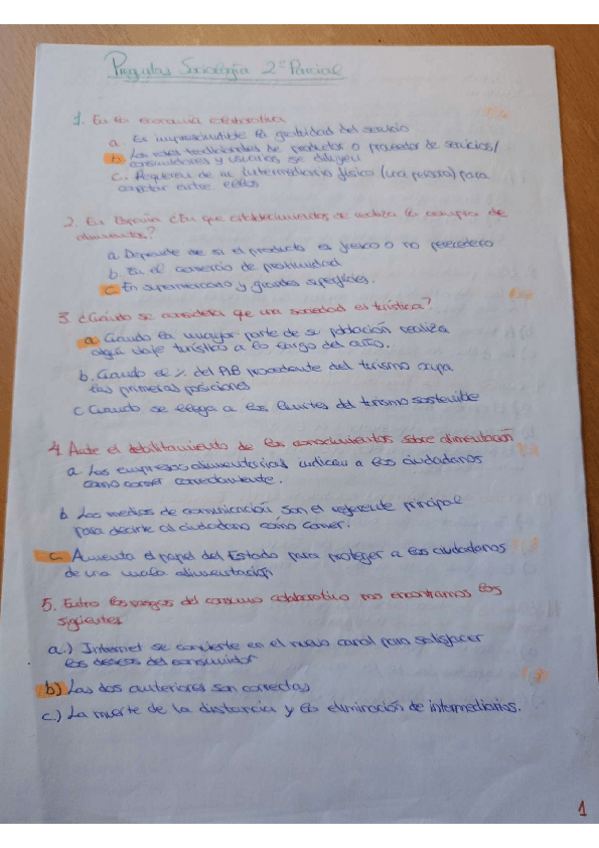 Preguntas Sociología 2º Parcial
1. En la economía colaborativa
a. Es imprescindible la gratuidad del servicio
b. Los roles tradicionales de productor o proveedor de servicios/
consumidores y usuarios se diluyen
c. Requieren de un intermediario físico (una persona) para
conectar entre ellos
2. En España ¿En que establecimientos se realiza la compra de
alimentos?
a. Depende de si el producto es fresco o no perecedero
b. En el comercio de proximidad
c. En supermercados y grandes superficies.
3. ¿Cuándo se considera que una sociedad es turística?
a. Cuando la mayor parte de su población realiza
algún viaje turístico a lo largo del año.
b. Cuando el % del PIB procedente del turismo ocupa
las primeras posiciones
c Cuando se llega a los límites del turismo sostenible
4. Ante el debilitamiento de los conocimientos sobre alimentación
a. Las empresas alimentarias indican a los ciudadanos
como comer correctamente.
b. Los medios de comunicación son el referente principal
para decirle al ciudadano como comer.
c. Aumenta el papel del Estado para proteger a los ciudadanos
de una mala alimentación
5. Entre los rasgos del consumo colaborativo nos encontramos los
siguientes
a.) Internet se convierte en el nuevo canal para satisfacer
los deseos del consumidor
b) Las dos anteriores son correctas
c.) La muerte de la distancia y la eliminación de intermediarios.
1